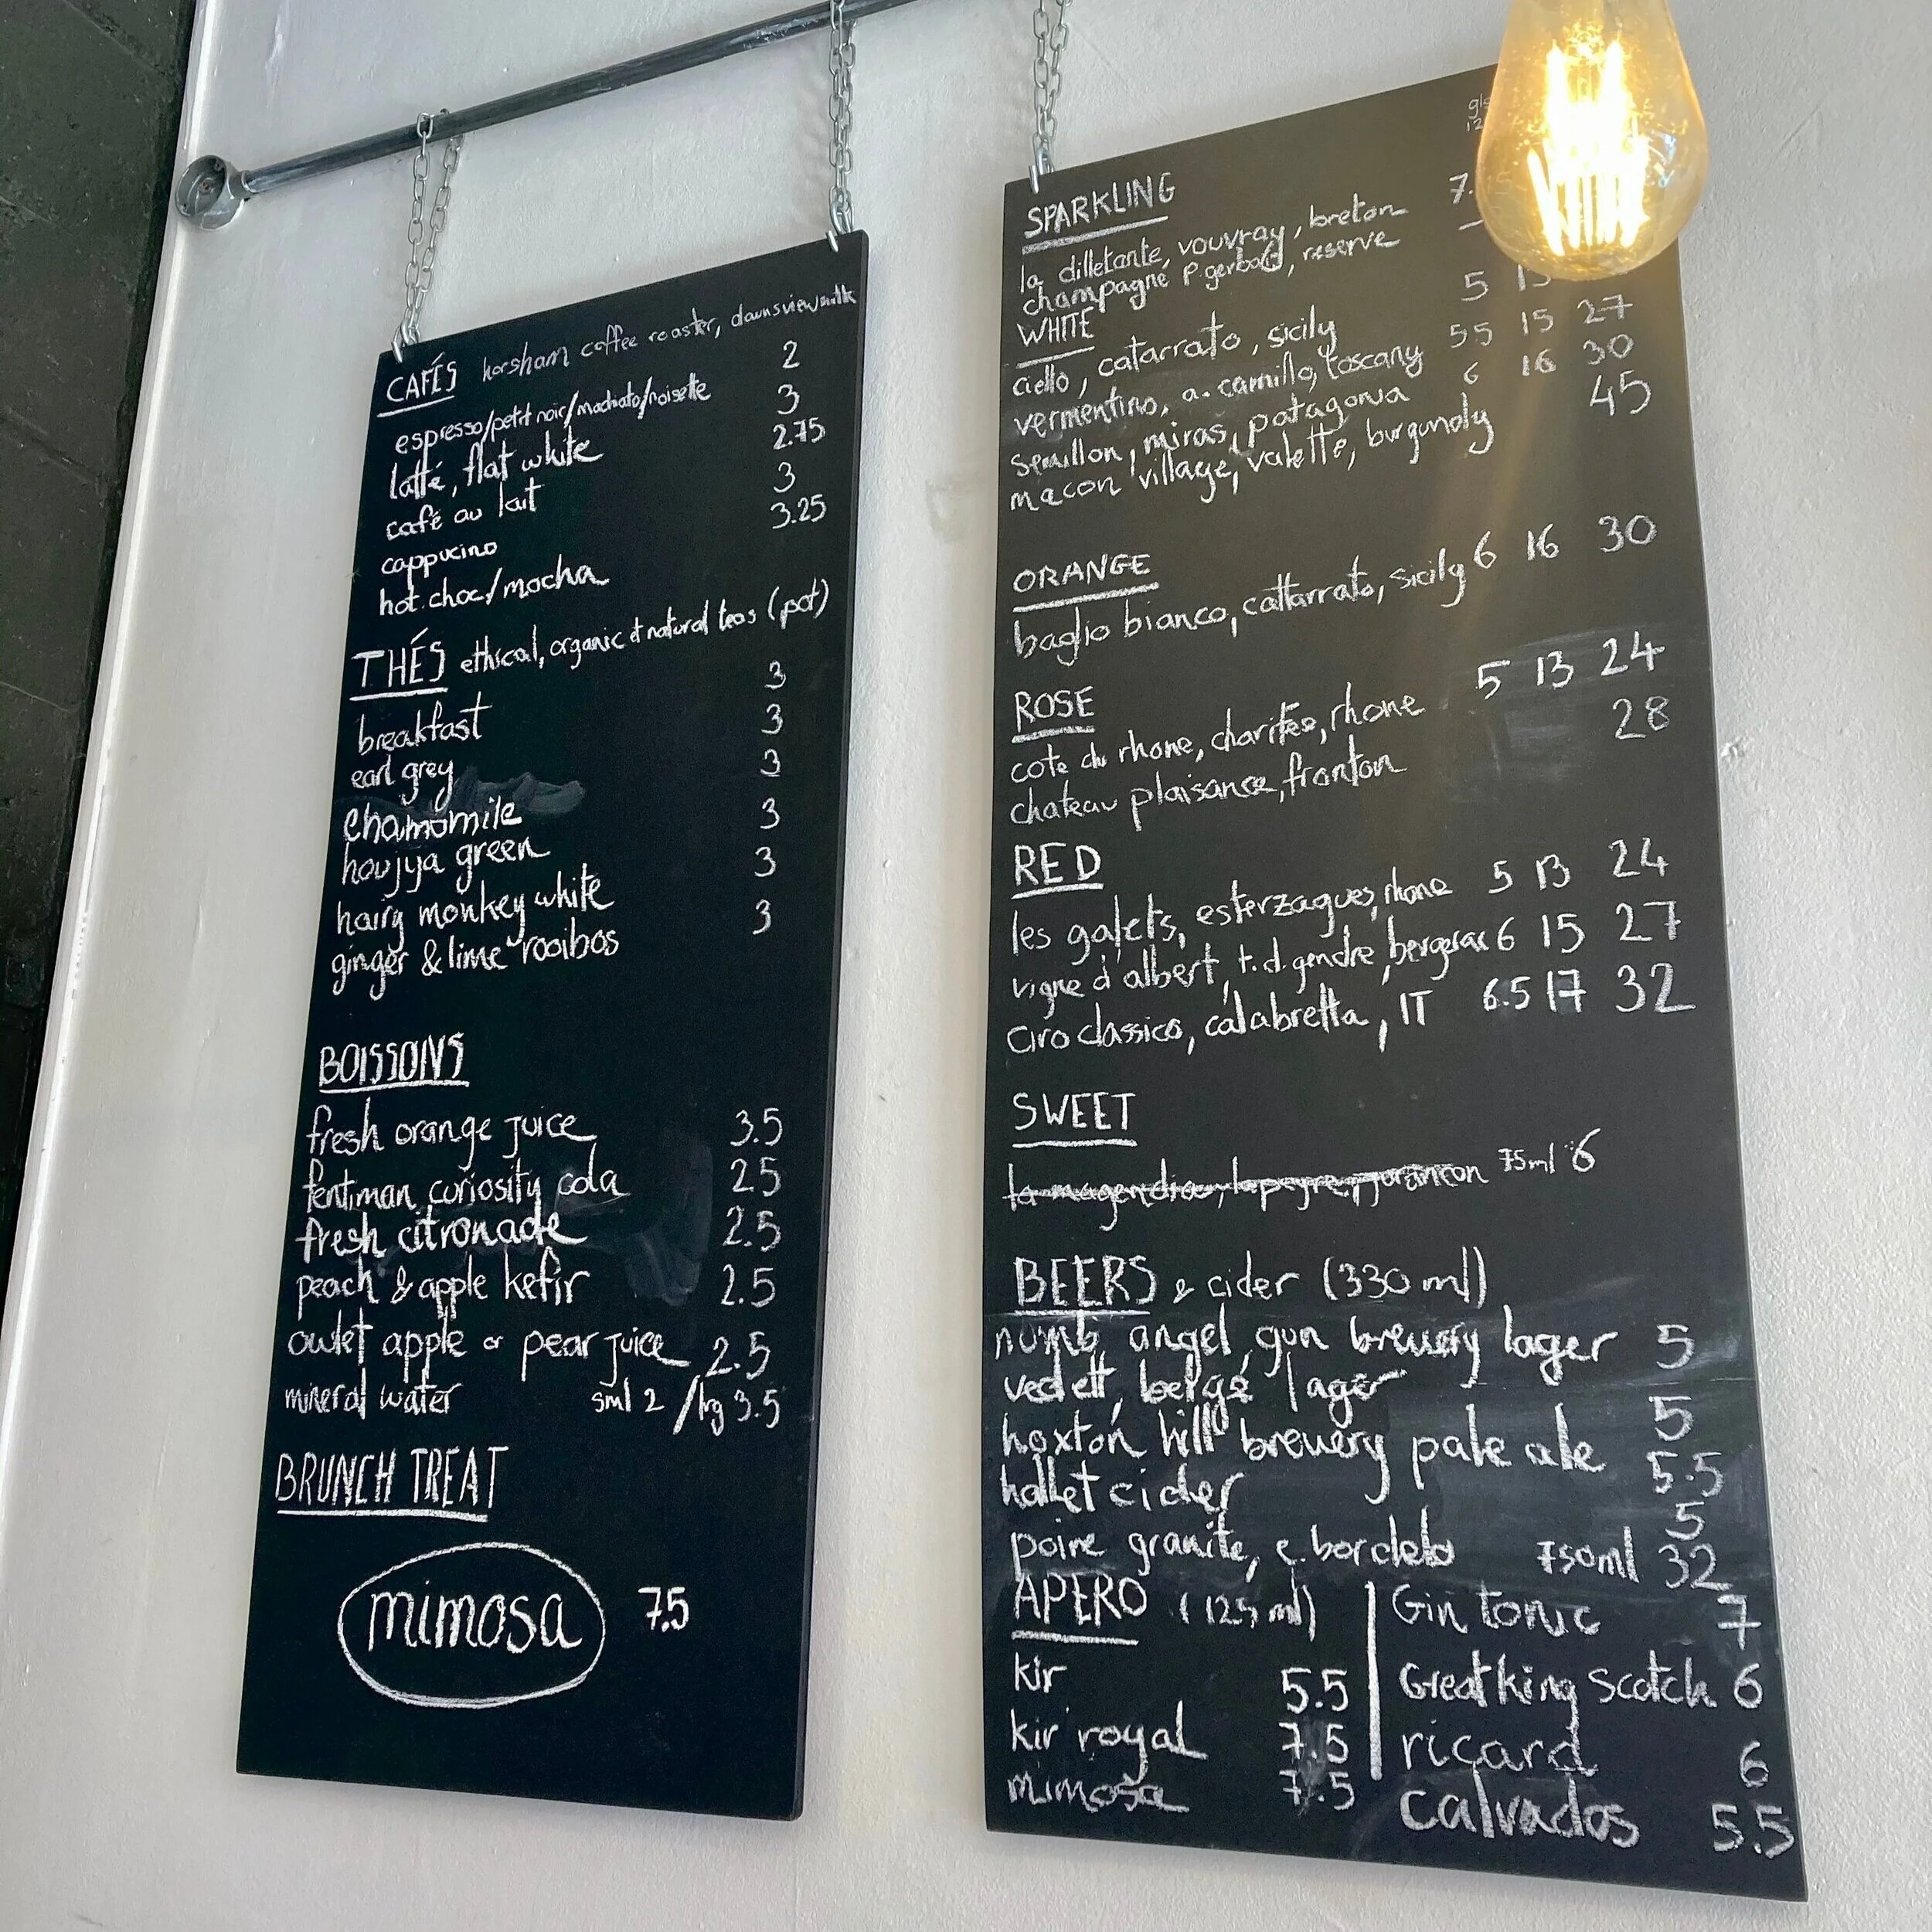 CAFÉS horsham coffee roaster, downsview milk
espresso/petit noir/machiato/noisette 2
latté, flat white 3
café au lait 2.75
cappucino 3
hot choc/mocha 3.25
THÉS ethical, organic & natural teas (pot)
breakfast 3
earl grey 3
chamomile 3
houjya green 3
hairy monkey white 3
ginger & lime rooibos 3
BOISSONS
fresh orange juice 3.5
fentiman curiosity cola 2.5
fresh citronade 2.5
peach & apple kefir 2.5
owlet apple or pear juice 2.5
mineral water sml 2 / lrg 3.5
BRUNCH TREAT
mimosa 7.5
SPARKLING
la dilletante, vouvray, breton 7.
champagne p. gerbais, reserve
WHITE
ciello, catarrato, sicily 5 15
vermentino, a. camillo, toscany 55 15 27
semillon, miras, patagonia 6 16 30
macon village, valette, burgundy 45
ORANGE
baglio bianco, cattarrato, sicily 6 16 30
ROSE
cote du rhone, charitée, rhone 5 13 24
chateau plaisance, fronton 28
RED
les galets, esterzagues, rhone 5 13 24
vigne d'albert, t.d. gendre, bergerac 6 15 27
ciro classico, calabretta, IT 6.5 17 32
SWEET
la magendia, lapeyre, jurancon 75ml 6
BEERS & cider (330 ml)
numb angel, gun brewery lager 5
vedett, belge lager 5
hoxton hill brewery pale ale 5.5
hallet cider 5
poire granite, e. bordelo 750ml 32
APERO (125 ml)
kir 5.5
kir royal 7.5
mimosa 7.5
Gin tonic 7
Great king scotch 6
ricard 6
calvados 5.5